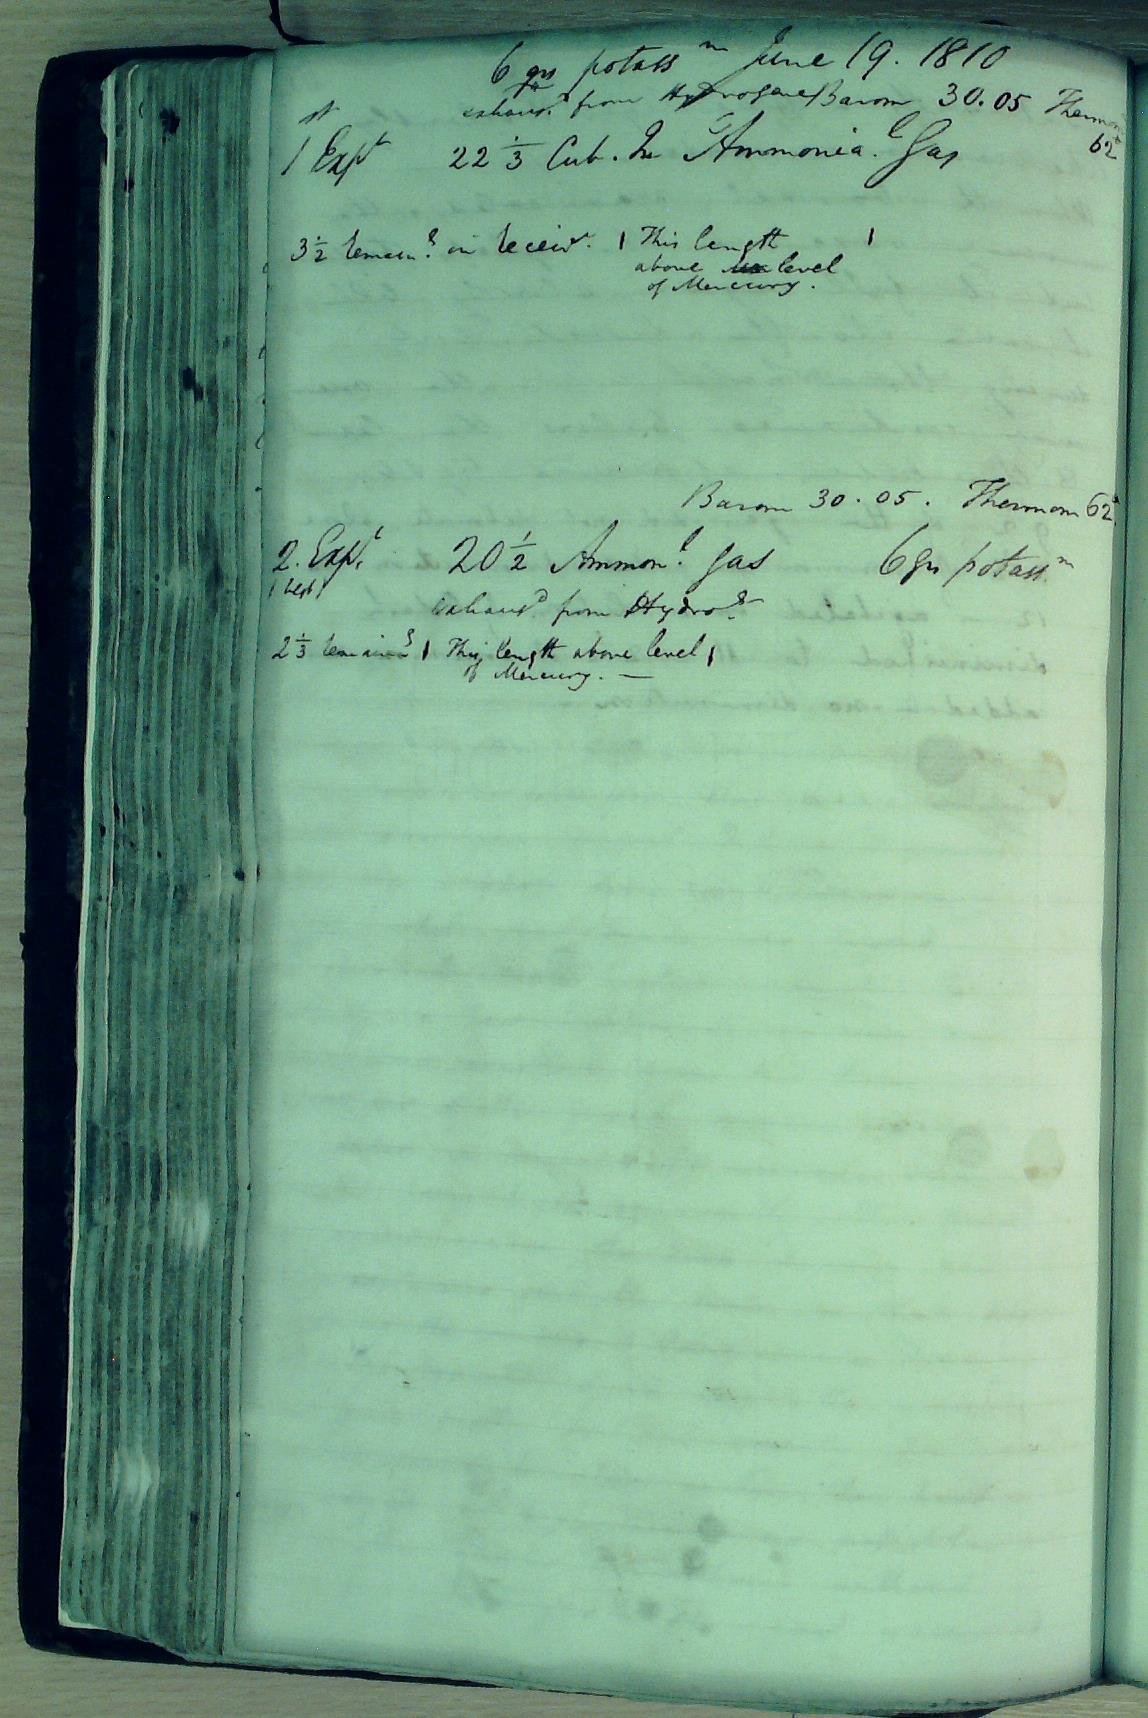 6 grs potassm June 19. 1810
exhausd. from Hydrogene/Barom 30.05 Thermom 62
1st Expt 22 1/3 Cub. In Ammonia.l Gas
3 1/2 remaing. in receivr. | This length |
above level
of Mercury.
Barom 30.05. Thermom 62
2. Expt. 20 1/2 Ammon.l gas 6 grs potassm
exhausd. from Hydroge.
2 1/3 remaing | This length above level |
of Mercury. —